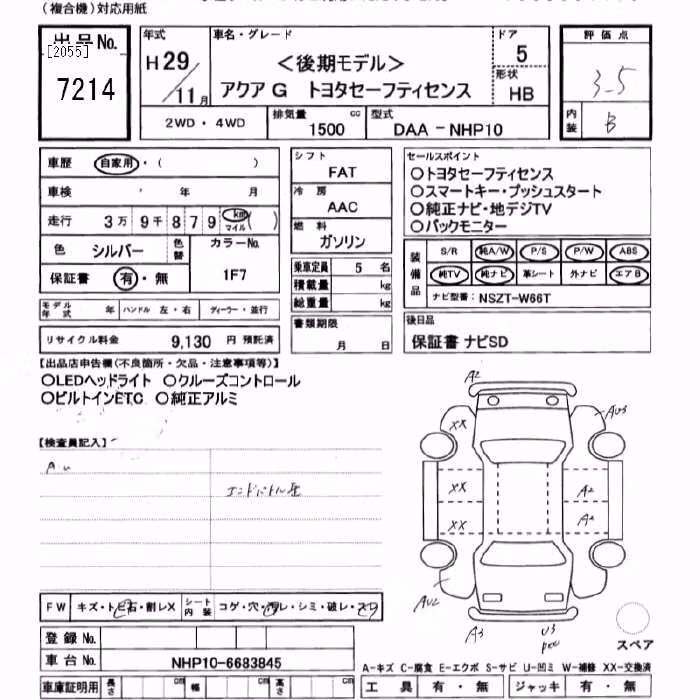 (複合機)対応用紙
出品No.
[2055]
7214
年式
H29/11月
車名・グレード
<後期モデル>
アクア G トヨタセーフティセンス
ドア
5
形状
HB
評価点
3.5
内装
B
2WD・4WD
排気量
1500 cc
型式
DAA-NHP10
車歴 自家用・( )
車検 年 月
走行 3万9千879 km マイル ( )
色 シルバー 色替 カラーNo.
保証書 有・無 1F7
モデル年式 年 ハンドル 左・右 ディーラー・並行
リサイクル料金 9,130 円 預託済
シフト
FAT
冷房
AAC
燃料
ガソリン
乗車定員 5 名
積載量 kg
総重量 kg
書類期限
月 日
セールスポイント
○トヨタセーフティセンス
○スマートキー・プッシュスタート
○純正ナビ・地デジTV
○バックモニター
装備品
S/R 純A/W P/S P/W ABS
純TV 純ナビ 革シート 外ナビ エアB
ナビ型番: NSZT-W66T
後日品
保証書 ナビSD
【出品店申告欄(不良箇所・欠品・注意事項等)】
○LEDヘッドライト ○クルーズコントロール
○ビルトインETC ○純正アルミ
【検査員記入】
A2
AU3
XX
XX
XX
A2
A2
AU2
A3
U3
FW キズ・トビ石・割レX シート内装 コゲ・穴・汚レ・シミ・破レ・スレ
登録 No.
車台 No. NHP10-6683845
車庫証明用 長さ cm 幅 cm 高さ cm
スペア
A-キズ C-腐食 E-エクボ S-サビ U-凹ミ W-補修 XX-交換済
工具 有・無 ジャッキ 有・無